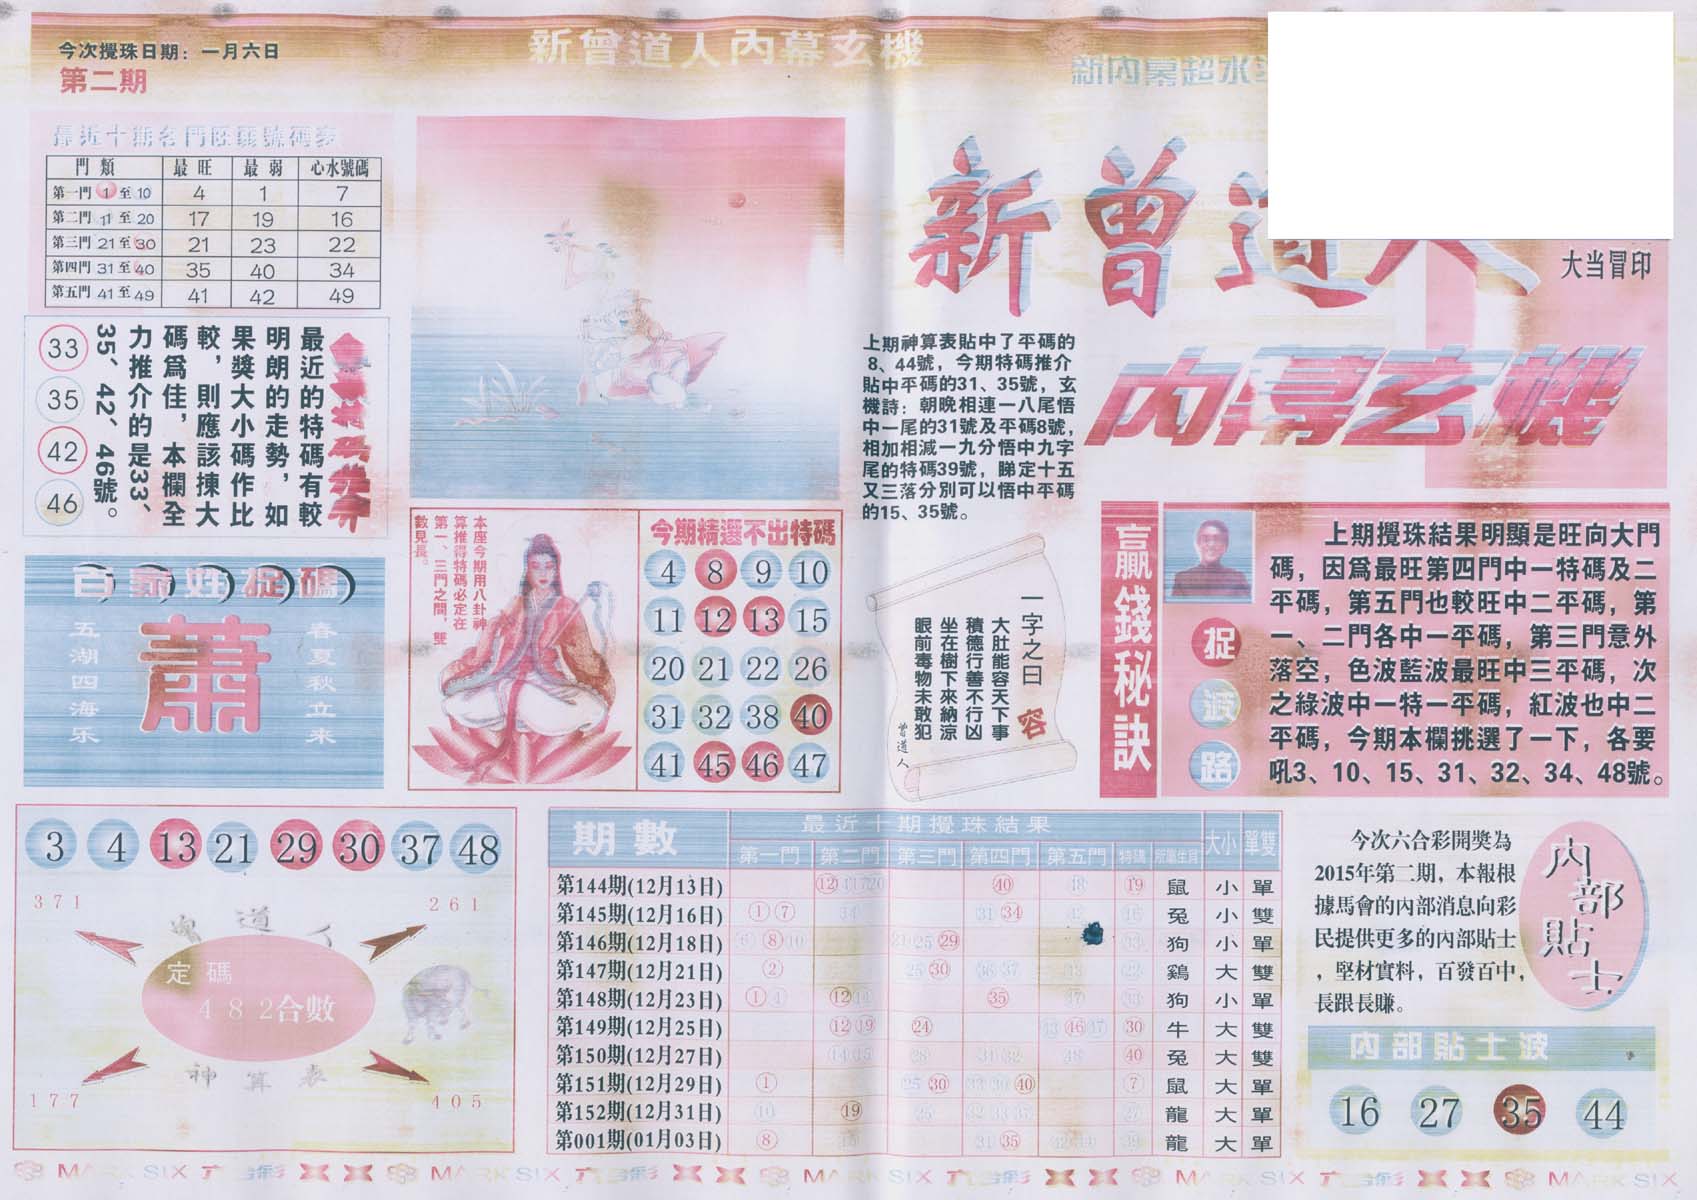 今次攪珠日期：一月六日
第二期
新曾道人內幕玄機
新內幕超水
最近十期各門旺弱號碼表
門類 最旺 最弱 心水號碼
第一門 1 至 10 4 1 7
第二門 11 至 20 17 19 16
第三門 21 至 30 21 23 22
第四門 31 至 40 35 40 34
第五門 41 至 49 41 42 49
33
35
42
46
最近的特碼有較
明朗的走勢，如
果獎大小碼作比
較，則應該揀大
碼為佳，本欄全
力推介的是33、
35、42、46號。
百家姓捉碼
春夏秋立來
蕭
五湖四海乐
本座今期用八卦神
算推得特碼必定在
第一、三門之間，雙
數見長。
今期精選不出特碼
4 8 9 10
11 12 13 15
20 21 22 26
31 32 38 40
41 45 46 47
新曾道人
內幕玄機
大当冒印
上期神算表貼中了平碼的
8、44號，今期特碼推介
貼中平碼的31、35號，玄
機詩：朝晚相連一八尾悟
中一尾的31號及平碼8號，
相加相減一九分悟中九字
尾的特碼39號，睇定十五
又三落分別可以悟中平碼
的15、35號。
一字之曰 容
大肚能容天下事
積德行善不行凶
坐在樹下來納涼
眼前毒物未敢犯
曾道人
贏錢秘訣
捉波路
上期攪珠結果明顯是旺向大門
碼，因為最旺第四門中一特碼及二
平碼，第五門也較旺中二平碼，第
一、二門各中一平碼，第三門意外
落空，色波藍波最旺中三平碼，次
之綠波中一特一平碼，紅波也中二
平碼，今期本欄挑選了一下，各要
吼3、10、15、31、32、34、48號。
3 4 13 21 29 30 37 48
371 261
道人
定碼
482合數
神算表
177 405
期數 最近十期攪珠結果 大小 單雙
第一門 第二門 第三門 第四門 第五門 特碼 所屬生肖
第144期(12月13日) 12 40 48 19 鼠 小 單
第145期(12月16日) 1 7 31 34 16 兔 小 雙
第146期(12月18日) 6 8 10 25 29 33 狗 小 單
第147期(12月21日) 2 25 30 36 37 22 鷄 大 雙
第148期(12月23日) 1 4 12 14 35 47 33 狗 小 單
第149期(12月25日) 12 19 24 43 46 47 30 牛 大 雙
第150期(12月27日) 14 15 28 31 32 48 40 兔 大 雙
第151期(12月29日) 1 25 30 40 7 鼠 大 單
第152期(12月31日) 10 19 25 27 龍 大 單
第001期(01月03日) 8 15 31 35 39 龍 大 單
今次六合彩開獎為
2015年第二期，本報根
據馬會的內部消息向彩
民提供更多的內部貼士
，堅材實料，百發百中，
長跟長賺。
內部貼士
內部貼士波
16 27 35 44
MARK SIX 六合彩 MARK SIX 六合彩 MARK SIX 六合彩 MARK SIX 六合彩 MARK SIX